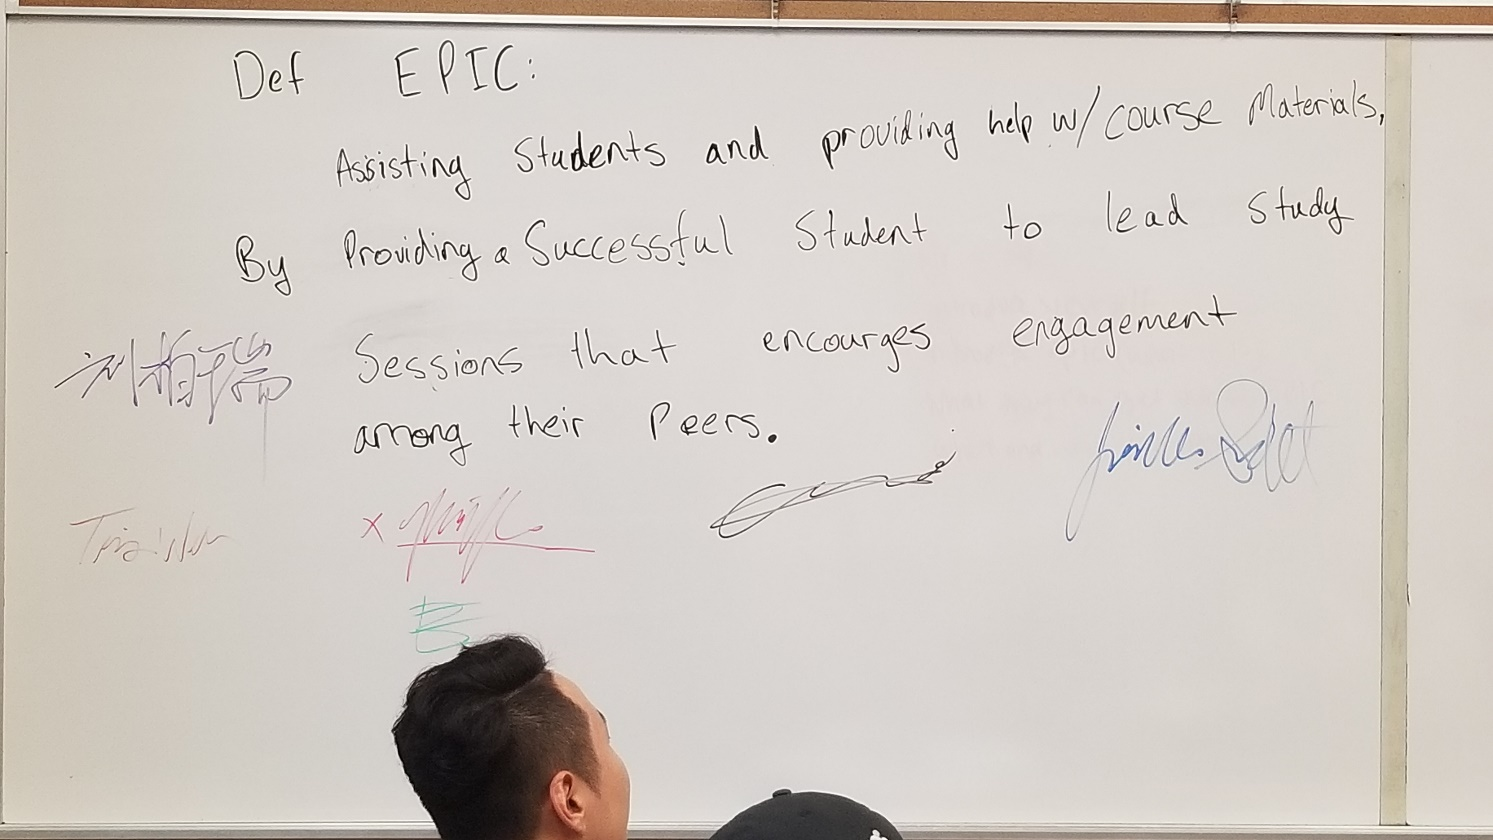 Def EPIC:
Assisting Students and providing help w/ course Materials,
By Providing a Successful Student to lead Study
Sessions that encourges engagement
among their Peers.
x